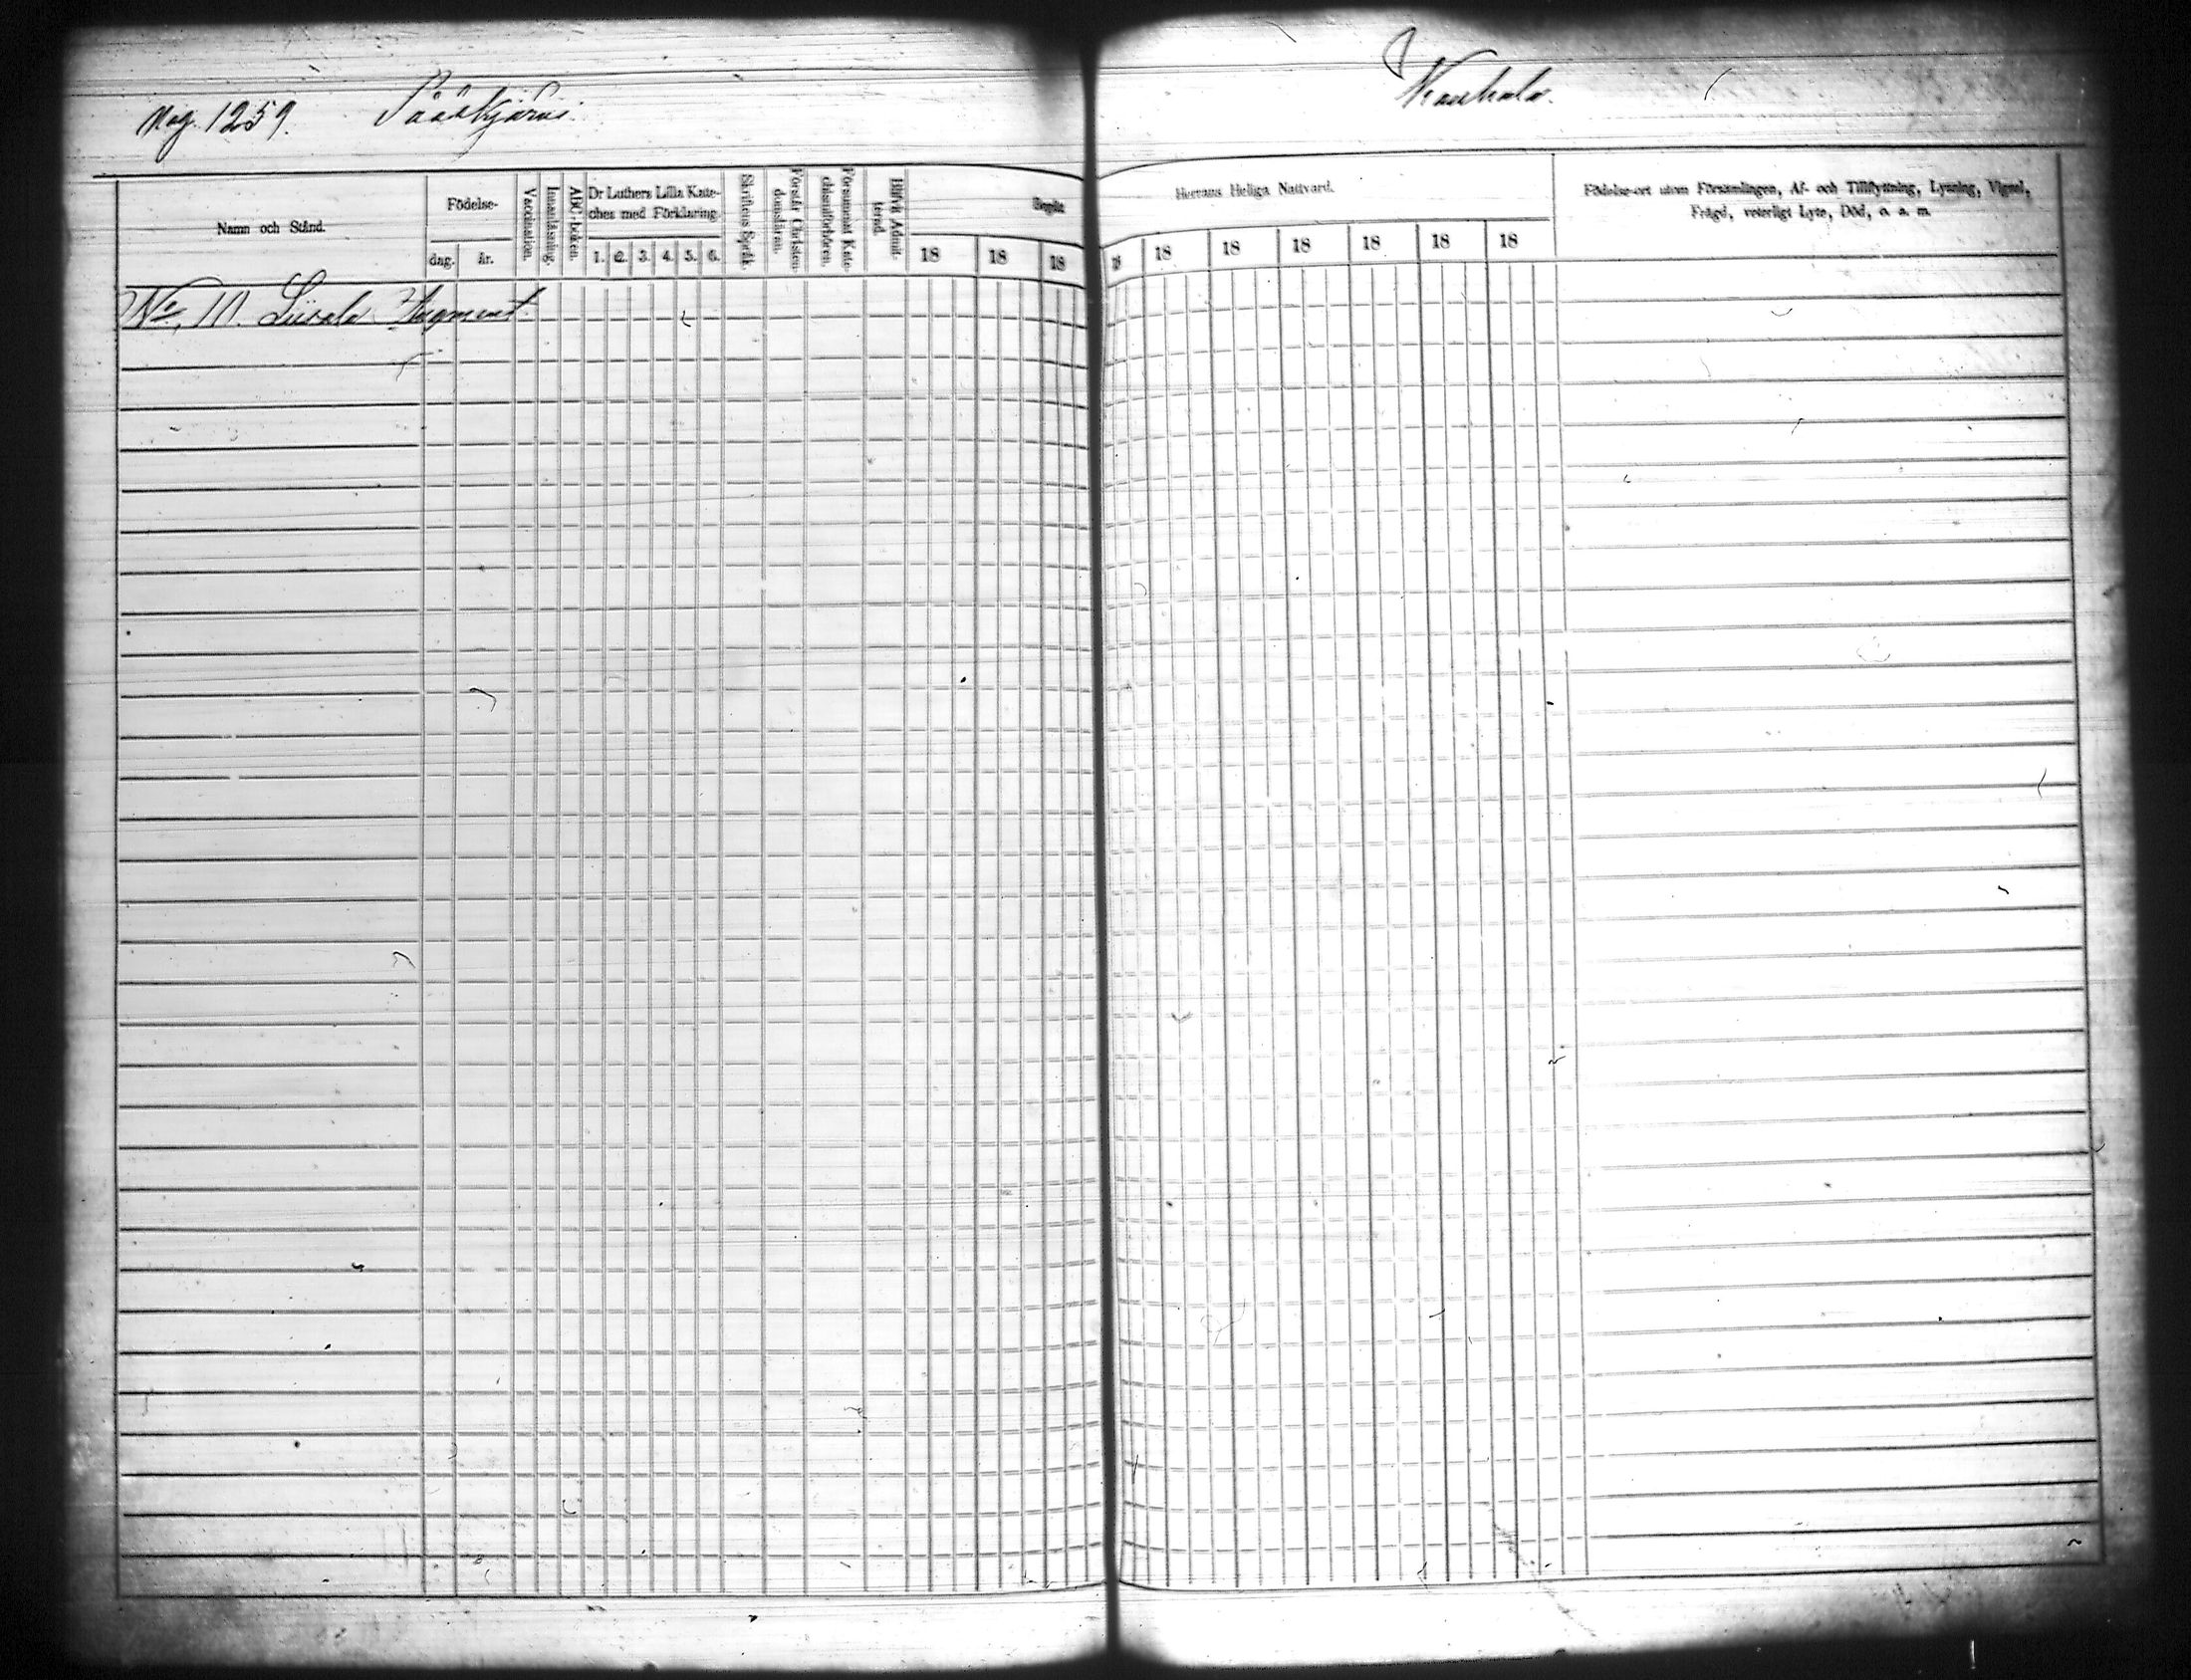 Pag. 1259. Pääskjärvi
Wanhala.
Namn och Stånd.
Födelse-
dag.
år.
Vaccination.
Innanläsning.
ABC-boken.
Dr Luthers Lilla Kate-
ches med Förklaring.
1. 2. 3. 4. 5. 6.
Skriftens Språk.
Förstår Christen-
domsläran.
Försummat Kate-
chismiförhören.
Blifvit Admit-
terad.
Begått
18 18 18
Herrans Heliga Nattvard.
18 18 18 18 18 18 18
Födelse-ort utom Församlingen, Af- och Tillflyttning, Lysning, Vigsel,
Frägd, veterligt Lyte, Död, o. a. m.
No 10. Liisala Augment